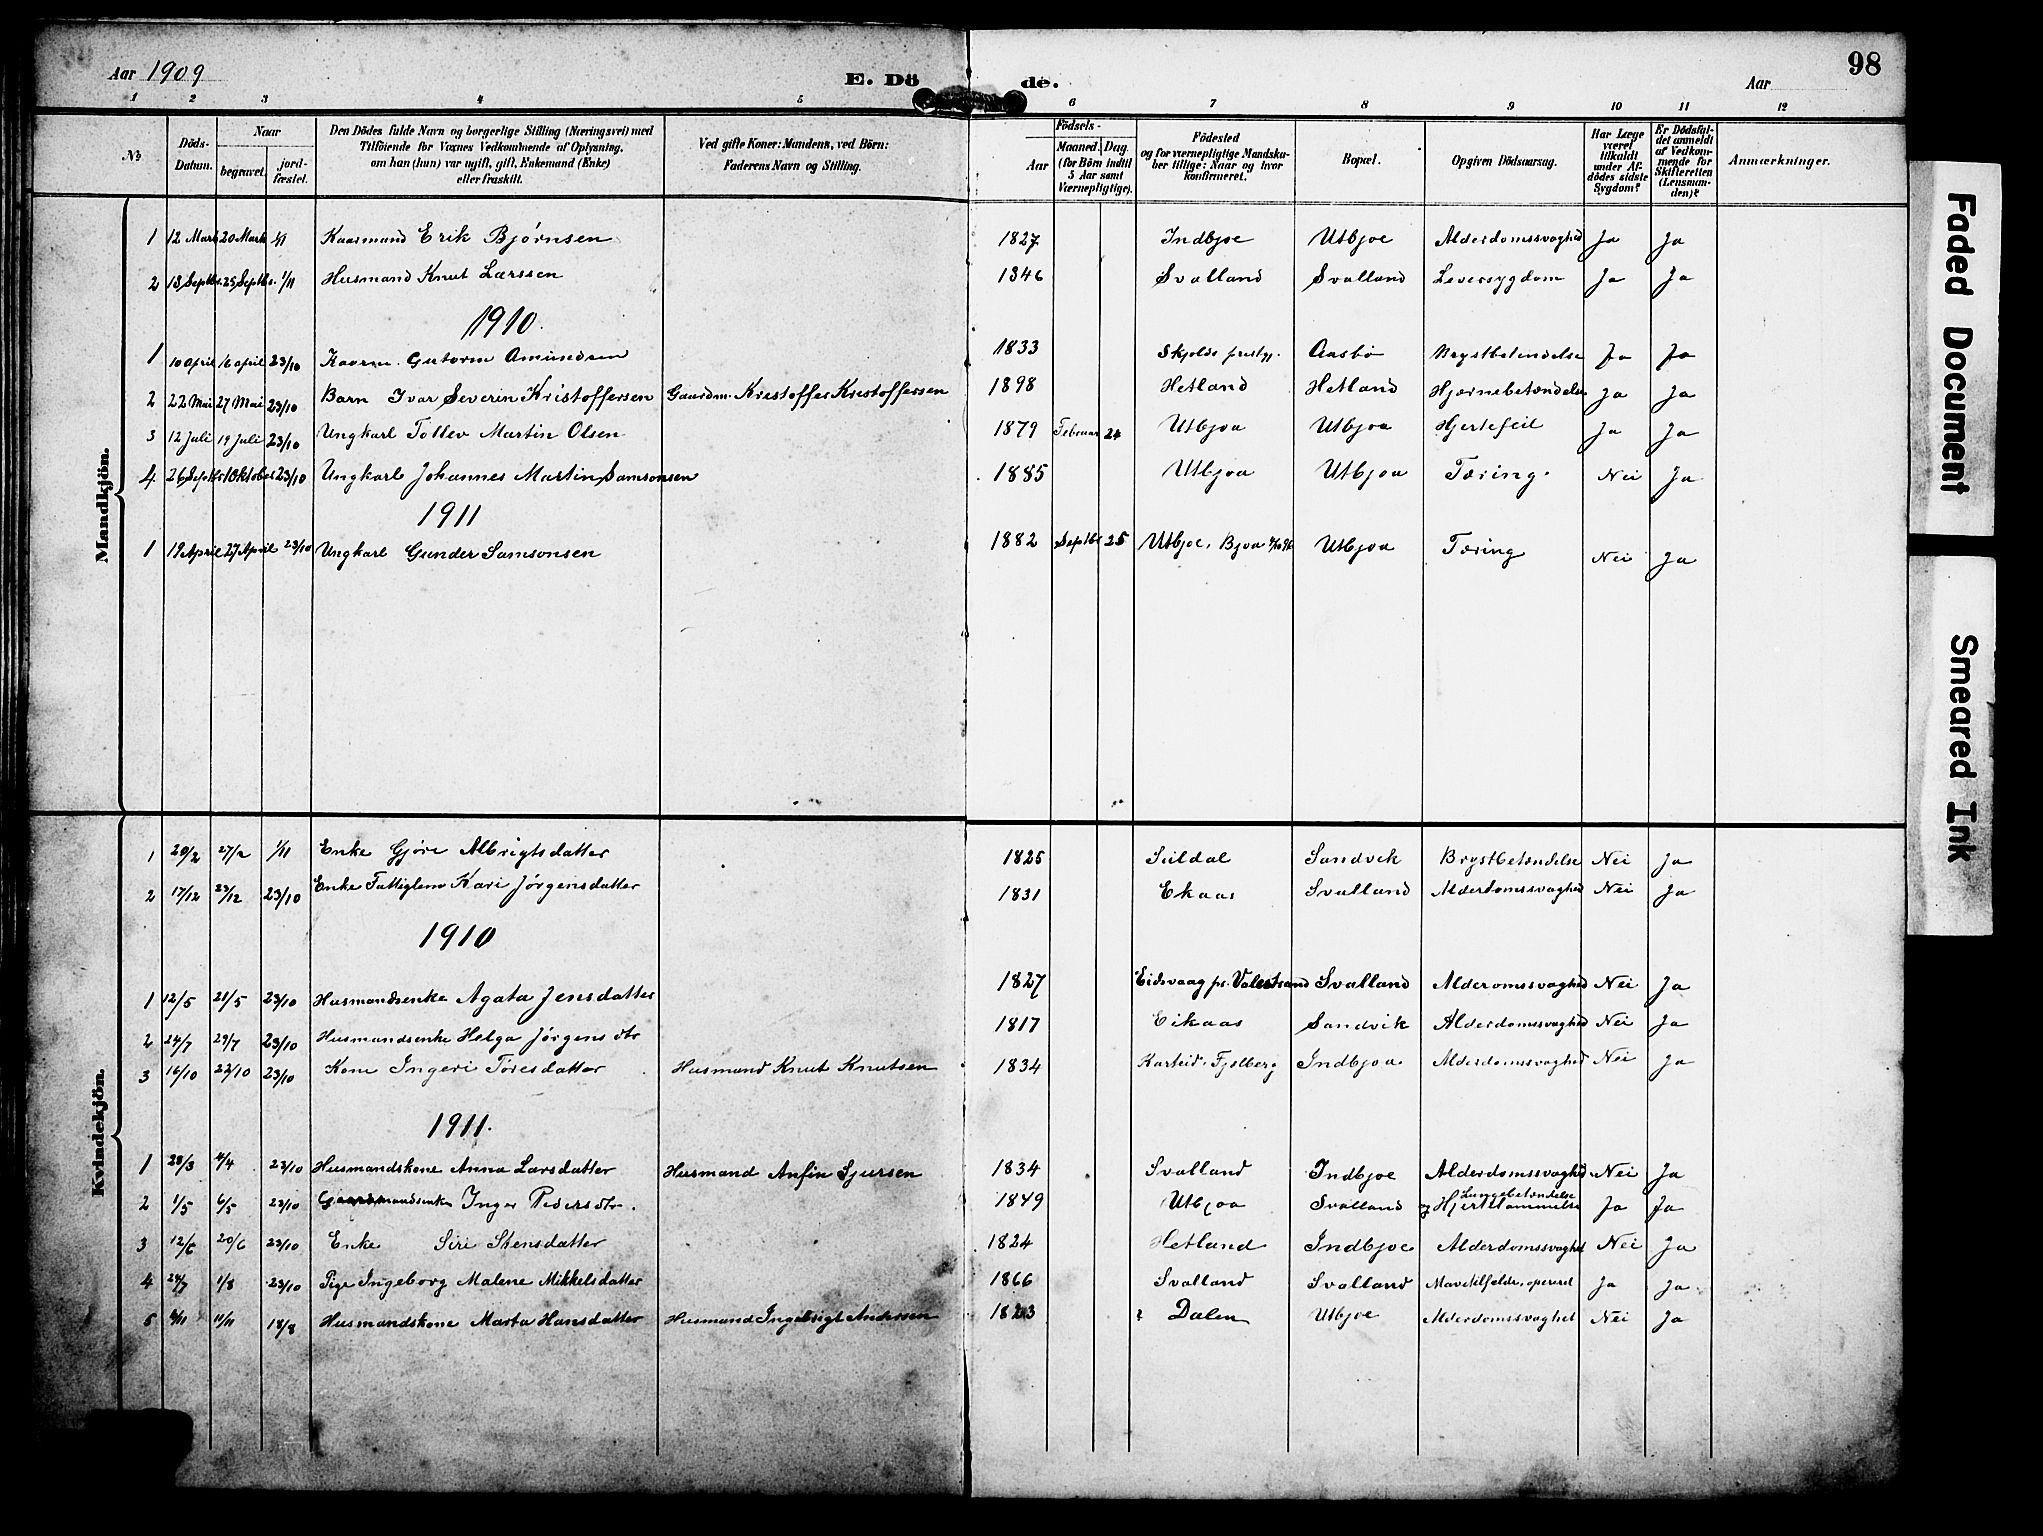 98
Aar 1909 E. Dö de. Aar
1 2 3 4 5 6 7 8 9 10 11 12
№ Döds-Datum. Naar begravet. jord-fæstet. Den Dödes fulde Navn og borgerlige Stilling (Næringsvei) med Tilföiende for Voxnes Vedkommende af Oplysning, om han (hun) var ugift, gift, Enkemand (Enke) eller fraskilt. Ved gifte Koner: Mandens, ved Börn: Faderens Navn og Stilling. Födsels- Aar Maaned. Dag. (for Börn indtil 5 Aar samt Værnepligtige). Födested og for værnepligtige Mandskaber tillige: Naar og hvor konfirmeret. Bopæl. Opgiven Dödsaarsag. Har Læge været tilkaldt under Afdödes sidste Sygdom? Er Dödsfaldet anmeldt af Vedkommende for Skifteretten (Lensmanden)? Anmærkninger.
Mandkjön.
1 12 Mars 20 Mars 1/11 Kaarmand Erik Bjørnsen 1827 Indbjoe Utbjoe Alderdomssvaghed Ja Ja
2 18 Septbr. 25 Septbr. 1/11 Husmand Knut Larssen 1846 Svalland Svalland Leversygdom Ja Ja
1910.
1 10 April 16 April 23/10 Kaarm. Gutorm Amundsen 1833 Skjolds prestgj. Aasbø Brystbetendelse Ja Ja
2 22 Mai 27 Mai 23/10 Barn Ivar Severin Kristoffersen Gaardm. Kristoffer Kristoffersen 1898 Hetland Hetland Hjernebetændelse Ja Ja
3 12 Juli 19 Juli 23/10 Ungkarl Tollev Martin Olsen 1879 Februar 24 Utbjoa Utbjoa Hjertefeil Ja Ja
4 26 Septbr 1 Oktober 23/10 Ungkarl Johannes Martin Samsonsen 1885 Utbjoa Utbjoa Tæring. Nei Ja
1911
1 19 April 27 April 23/10 Ungkarl Gunder Samsonsen 1882 Septbr 25 Utbjoe, Bjoa Utbjoa Tæring Nei Ja
Kvindekjön.
1 20/2 27/2 1/11 Enke Gjøri Albrigtsdatter 1825 Suldal Sandvik Brystbetændelse Nei Ja
2 17/12 23/12 23/10 Enke Fattiglem Kari Jørgensdatter 1831 Ekaas Svalland Alderdomssvaghed Nei Ja
1910
1 12/5 21/5 23/10 Husmandsenke Agata Jensdatter 1827 Eidsvaag pr. Valestrand Svalland Alderomssvaghed Nei Ja
2 24/7 29/7 23/10 Husmandsenke Helga Jørgensdtr 1817 Eikaas Sandvik Alderdomssvaghed Nei Ja
3 16/10 22/10 23/10 Kone Ingeri Toresdatter Husmand Knut Knutsen 1834 Fjelberg Indbjoa Alderdomssvaghed Nei Ja
1911.
1 28/3 4/4 23/10 Husmandskone Anna Larsdatter Husmand Anfin Sjursen 1834 Svalland Indbjoe Alderdomssvaghed Nei Ja
2 1/5 6/5 23/10 Gaardmandsenke Inger Pedersdtr. 1849 Utbjoa Svalland Lungebetændelse og Hjertelammelse Ja Ja
3 12/6 20/6 23/10 Enke Siri Stensdatter 1824 Hetland Indbjoe Alderdomssvaghet Nei Ja
4 24/7 1/8 23/10 Pige Ingeborg Malene Mikkelsdatter 1866 Svalland Svalland Mavetilfelde, opereret Ja Ja
5 11/11 18/8 Husmandskone Marta Hansdatter Husmand Ingebrigt Anderssen 1823 Dalen Utbjoe Alderdomssvaghet Nei Ja
Faded Document
Smeared Ink